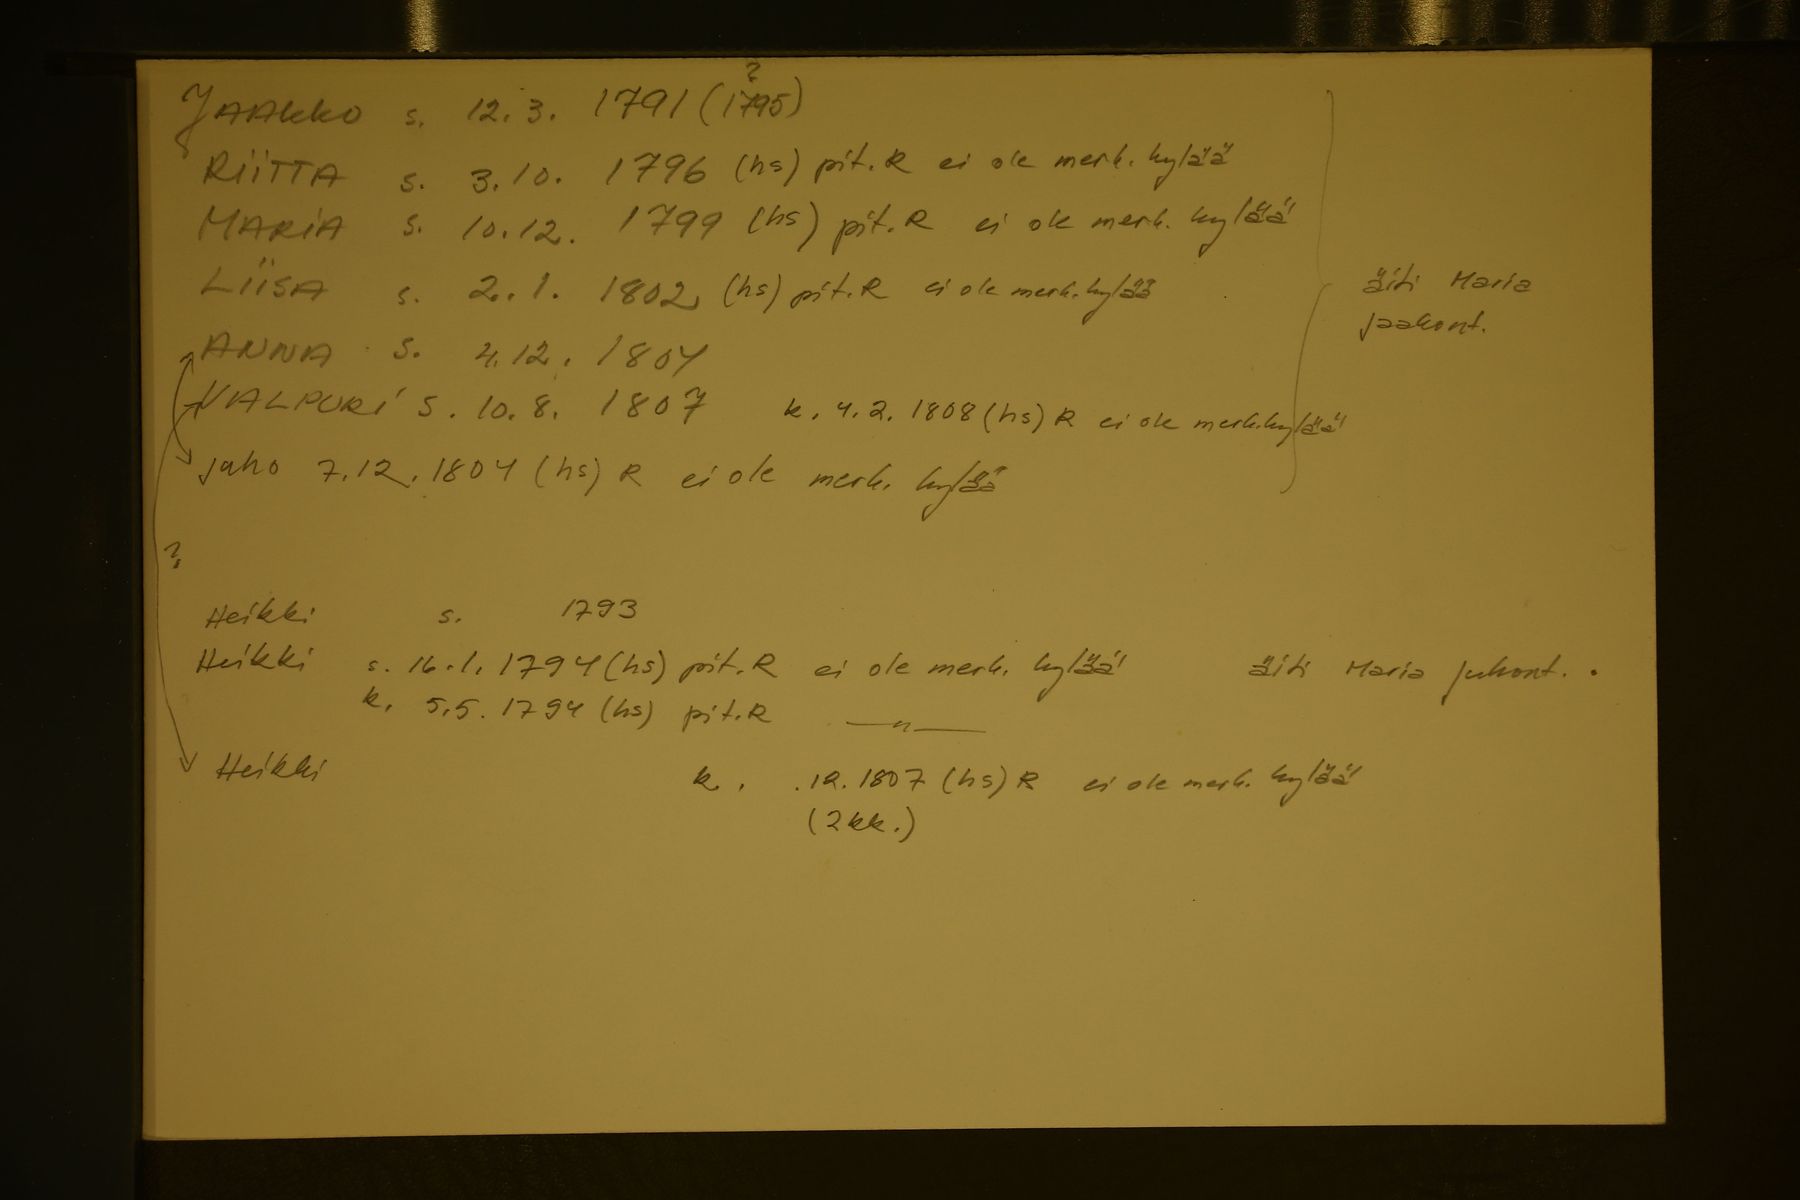 ?
JAAKKO s. 12.3. 1791 (1795)
RIITTA s. 3.10. 1796 (hs) pit.R ei ole merk. kylää
MARIA s. 10.12. 1799 (hs) pit.R ei ole merk. kylää
LIISA s. 2.1. 1802 (hs) pit.R ei ole merk. kylää
äiti Maria
Jaakont.
ANNA s. 4.12. 1804
VALPURI s. 10.8. 1807 k. 4.2. 1808 (hs) R ei ole merk. kylää
Juho 7.12.1804 (hs) R ei ole merk. kylää
?
Heikki s. 1793
Heikki s. 16.1. 1794 (hs) pit.R ei ole merk. kylää äiti Maria Juhont.
k. 5.5. 1794 (hs) pit.R —"—
Heikki k. .12.1807 (hs) R ei ole merk. kylää
(2kk.)